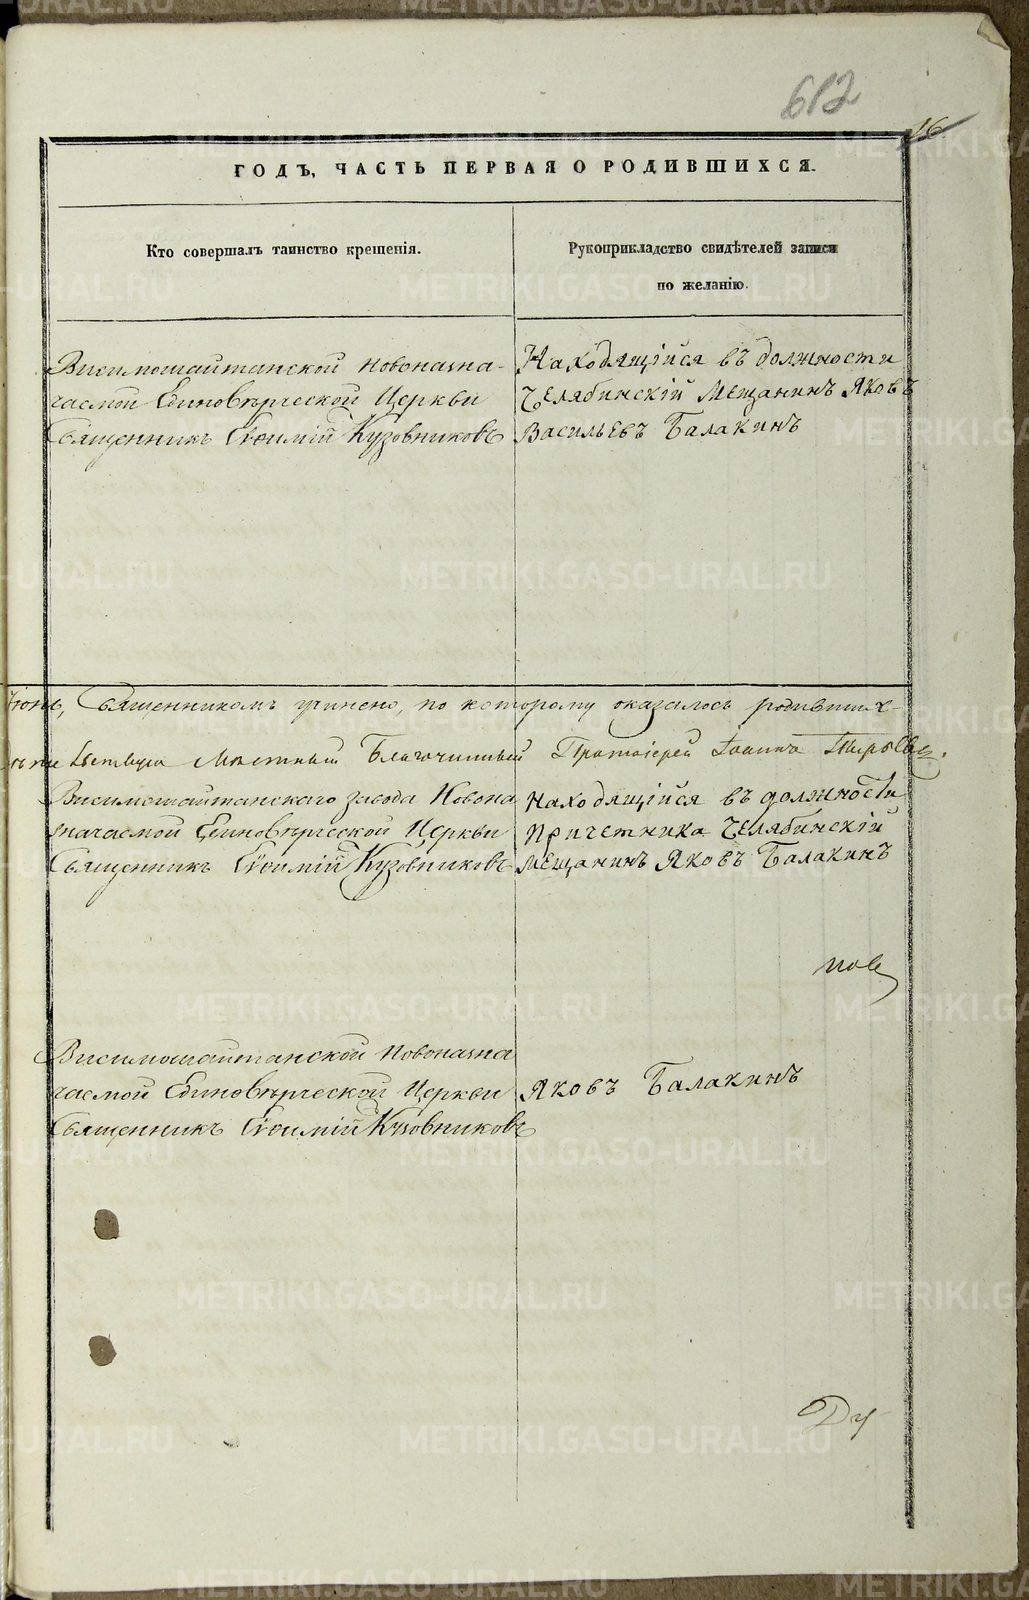 612
16
ГОДЪ, ЧАСТЬ ПЕРВАЯ О РОДИВШИХСЯ.
Кто совершалъ таинство крещенія.
Рукоприкладство свидѣтелей записи
по желанію.
Висимошайтанской новоназна-
чаемой Единовѣрческой Церкви
Священникъ Евѳимій Кузовниковъ
Находящійся въ должности
Челябинскій Мещанинъ Яковъ
Васильевъ Балакинъ
Іюнь, Священникомъ учинено, по которому оказалось родивших-
Местный Благочинный Протоіерей Іоаннъ
Висимошайтанскаго завода Новона
значаемой Единовѣрческой Церкви
Священникъ Евѳимій Кузовниковъ
Находящійся въ должности
Причетника Челябинскій
Мещанинъ Яковъ Балакинъ
Висимошайтанской Новоназна
чаемой Единовѣрческой Церкви
Священникъ Евѳимій Кузовниковъ
Яковъ Балакинъ
METRIKI.GASO-URAL.RU